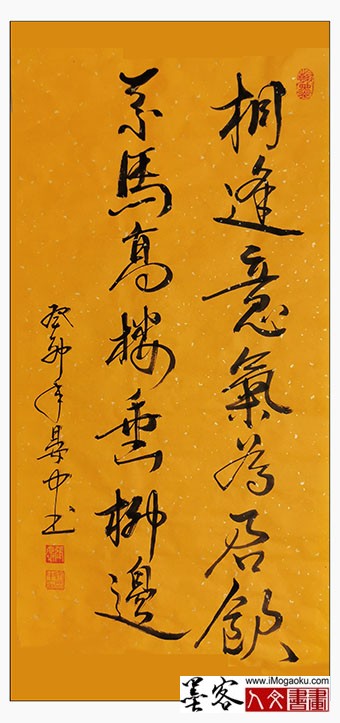 相逢意氣為君飲
系馬高樓垂柳邊
癸卯年晏中书
墨客
www.iMogaoku.com
人文書畫